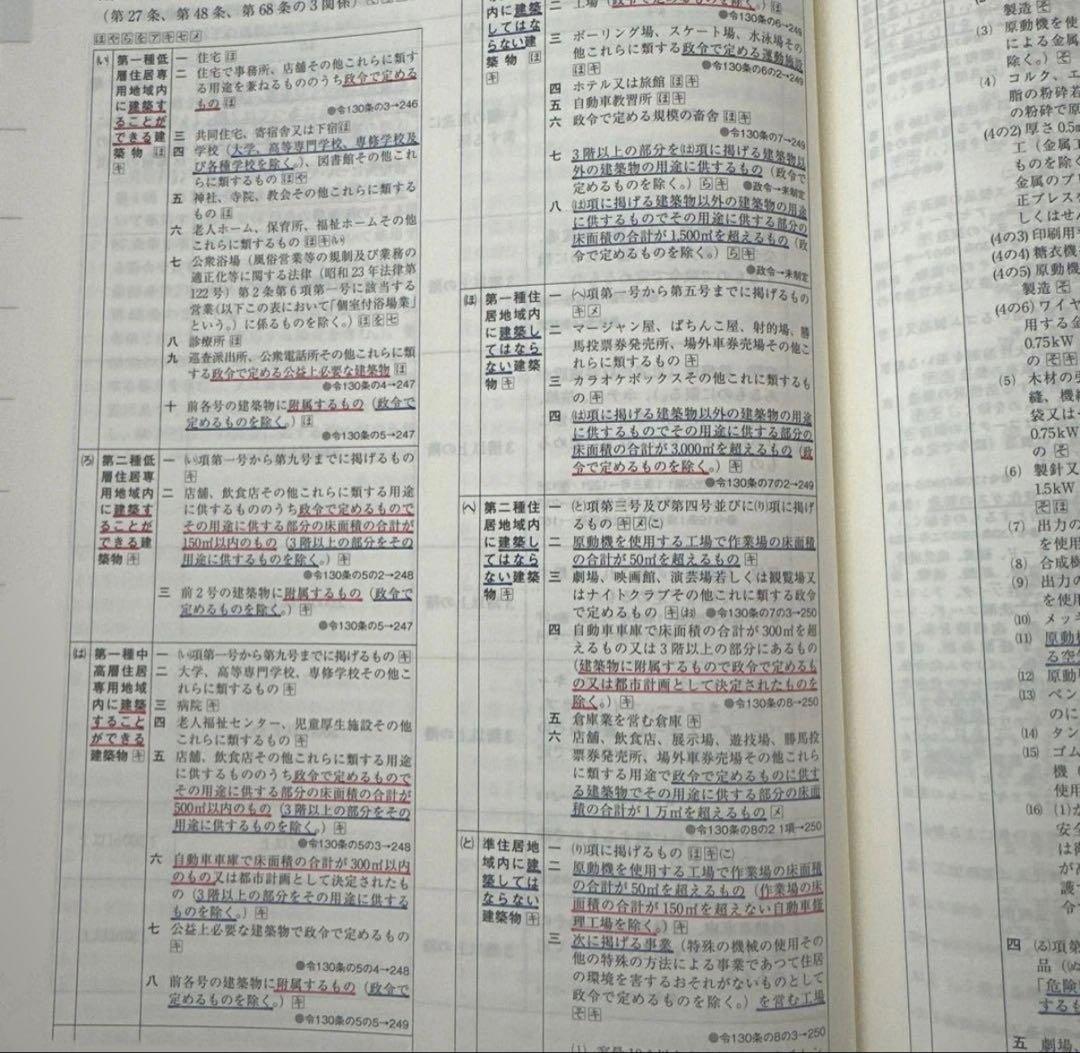 （第27条、第48条、第68条の3関係）
ほやらをアキセメ
(い) 第一種低層住居専用地域内に建築することができる建築物 ほ キ
一 住宅 ほ
二 住宅で事務所、店舗その他これらに類す
る用途を兼ねるもののうち政令で定める
もの ほ
●令130条の3→246
三 共同住宅、寄宿舎又は下宿 ほ
四 学校（大学、高等専門学校、専修学校及
び各種学校を除く。）、図書館その他これ
らに類するもの ほ や
五 神社、寺院、教会その他これらに類する
もの ほ
六 老人ホーム、保育所、福祉ホームその他
これらに類するもの ほ キ (い)
七 公衆浴場（風俗営業等の規制及び業務の
適正化等に関する法律（昭和23年法律第
122号）第2条第6項第一号に該当する
営業（以下この表において「個室付浴場業」
という。）に係るものを除く。） ほ を 七
八 診療所 ほ
九 巡査派出所、公衆電話所その他これらに類
する政令で定める公益上必要な建築物 ほ
●令130条の4→247
十 前各号の建築物に附属するもの（政令で
定めるものを除く。） ほ
●令130条の5→247
(ろ) 第二種低層住居専用地域内に建築することができる建築物 キ
一 (い)項第一号から第九号までに掲げるもの
キ
二 店舗、飲食店その他これらに類する用途
に供するもののうち政令で定めるもので
その用途に供する部分の床面積の合計が
150㎡以内のもの（3階以上の部分をその
用途に供するものを除く。） キ
●令130条の5の2→248
三 前2号の建築物に附属するもの（政令で
定めるものを除く。） キ
●令130条の5→247
(は) 第一種中高層住居専用地域内に建築することができる建築物 キ
一 (い)項第一号から第九号までに掲げるもの キ
二 大学、高等専門学校、専修学校その他こ
れらに類するもの キ
三 病院 キ
四 老人福祉センター、児童厚生施設その他
これらに類するもの キ
五 店舗、飲食店その他これらに類する用途
に供するもののうち政令で定めるもので
その用途に供する部分の床面積の合計が
500㎡以内のもの（3階以上の部分をその
用途に供するものを除く。） キ
●令130条の5の3→248
六 自動車車庫で床面積の合計が300㎡以内
のもの又は都市計画として決定されたも
の（3階以上の部分をその用途に供する
ものを除く。） キ
七 公益上必要な建築物で政令で定めるもの
キ
●令130条の5の4→248
八 前各号の建築物に附属するもの（政令で
定めるものを除く。） キ
●令130条の5の5→249
内に建築してはならない建築物 ほ キ
二 工場（政令で定めるものを除く。） ほ
●令130条の6→249
三 ボーリング場、スケート場、水泳場その
他これらに類する政令で定める運動施設
ほ キ
●令130条の6の2→249
四 ホテル又は旅館 ほ キ
五 自動車教習所 ほ キ
六 政令で定める規模の畜舎 ほ キ
●令130条の7→249
七 3階以上の部分を(は)項に掲げる建築物以
外の建築物の用途に供するもの（政令で
定めるものを除く。） ら キ ●政令→未制定
八 (は)項に掲げる建築物以外の建築物の用途
に供するものでその用途に供する部分の
床面積の合計が1,500㎡を超えるもの（政
令で定めるものを除く。） ら キ
●政令→未制定
(ほ) 第一種住居地域内に建築してはならない建築物 キ
一 (へ)項第一号から第五号までに掲げるもの
キ メ
二 マージャン屋、ぱちんこ屋、射的場、勝
馬投票券発売所、場外車券売場その他こ
れらに類するもの キ
三 カラオケボックスその他これに類するも
の キ
四 (は)項に掲げる建築物以外の建築物の用途
に供するものでその用途に供する部分の
床面積の合計が3,000㎡を超えるもの（政
令で定めるものを除く。） キ
●令130条の7の2→249
(へ) 第二種住居地域内に建築してはならない建築物 キ
一 (と)項第三号及び第四号並びに(り)項に掲げ
るもの キ メ (こ)
二 原動機を使用する工場で作業場の床面積
の合計が50㎡を超えるもの キ
三 劇場、映画館、演芸場若しくは観覧場又
はナイトクラブその他これに類する政令
で定めるもの キ (お) ●令130条の7の3→250
四 自動車車庫で床面積の合計が300㎡を超
えるもの又は3階以上の部分にあるもの
（建築物に附属するもので政令で定めるも
の又は都市計画として決定されたものを
除く。） キ ●令130条の8→250
五 倉庫業を営む倉庫 キ
六 店舗、飲食店、展示場、遊技場、勝馬投
票券発売所、場外車券売場その他これら
に類する用途で政令で定めるものに供す
る建築物でその用途に供する部分の床面
積の合計が1万㎡を超えるもの メ
●令130条の8の2 1項→250
(と) 準住居地域内に建築してはならない建築物 キ
一 (り)項に掲げるもの ほ キ (こ)
二 原動機を使用する工場で作業場の床面積
の合計が50㎡を超えるもの（作業場の床
面積の合計が150㎡を超えない自動車修
理工場を除く。） キ
三 次に掲げる事業（特殊の機械の使用その
他の特殊の方法による事業であつて住居
の環境を害するおそれがないものとして
政令で定めるものを除く。）を営む工場
そ キ
●令130条の8の3→250
製造 そ
(3) 原動機を使
による金属
除く。）
(4) コルク、エ
脂の粉砕若
の粉砕で原
(4の2) 厚さ0.5m
工（金属工
ものを除く
金属のプレ
正プレスを
しくはせん
(4の3) 印刷用平
(4の4) 糖衣機
(4の5) 原動機
製造 そ
(4の6) ワイヤ
用する金
0.75kW
の そ キ
(5) 木材の引
縫、機
袋又は
0.75kW
の そ
(6) 製針又
1.5kW
そ ほ
(7) 出力の
を使用
(8) 合成樹
(9) 出力の
を使用
(10) メッキ
(11) 原動
る空
(12) 原動
(13) ペン
のに
(14) タン
(15) ゴム
機（
使用
(16) (1)か
安全
は衛
が
護
令
四 (る)項第
品（(ぬ)
「危険
するも
五 劇場、